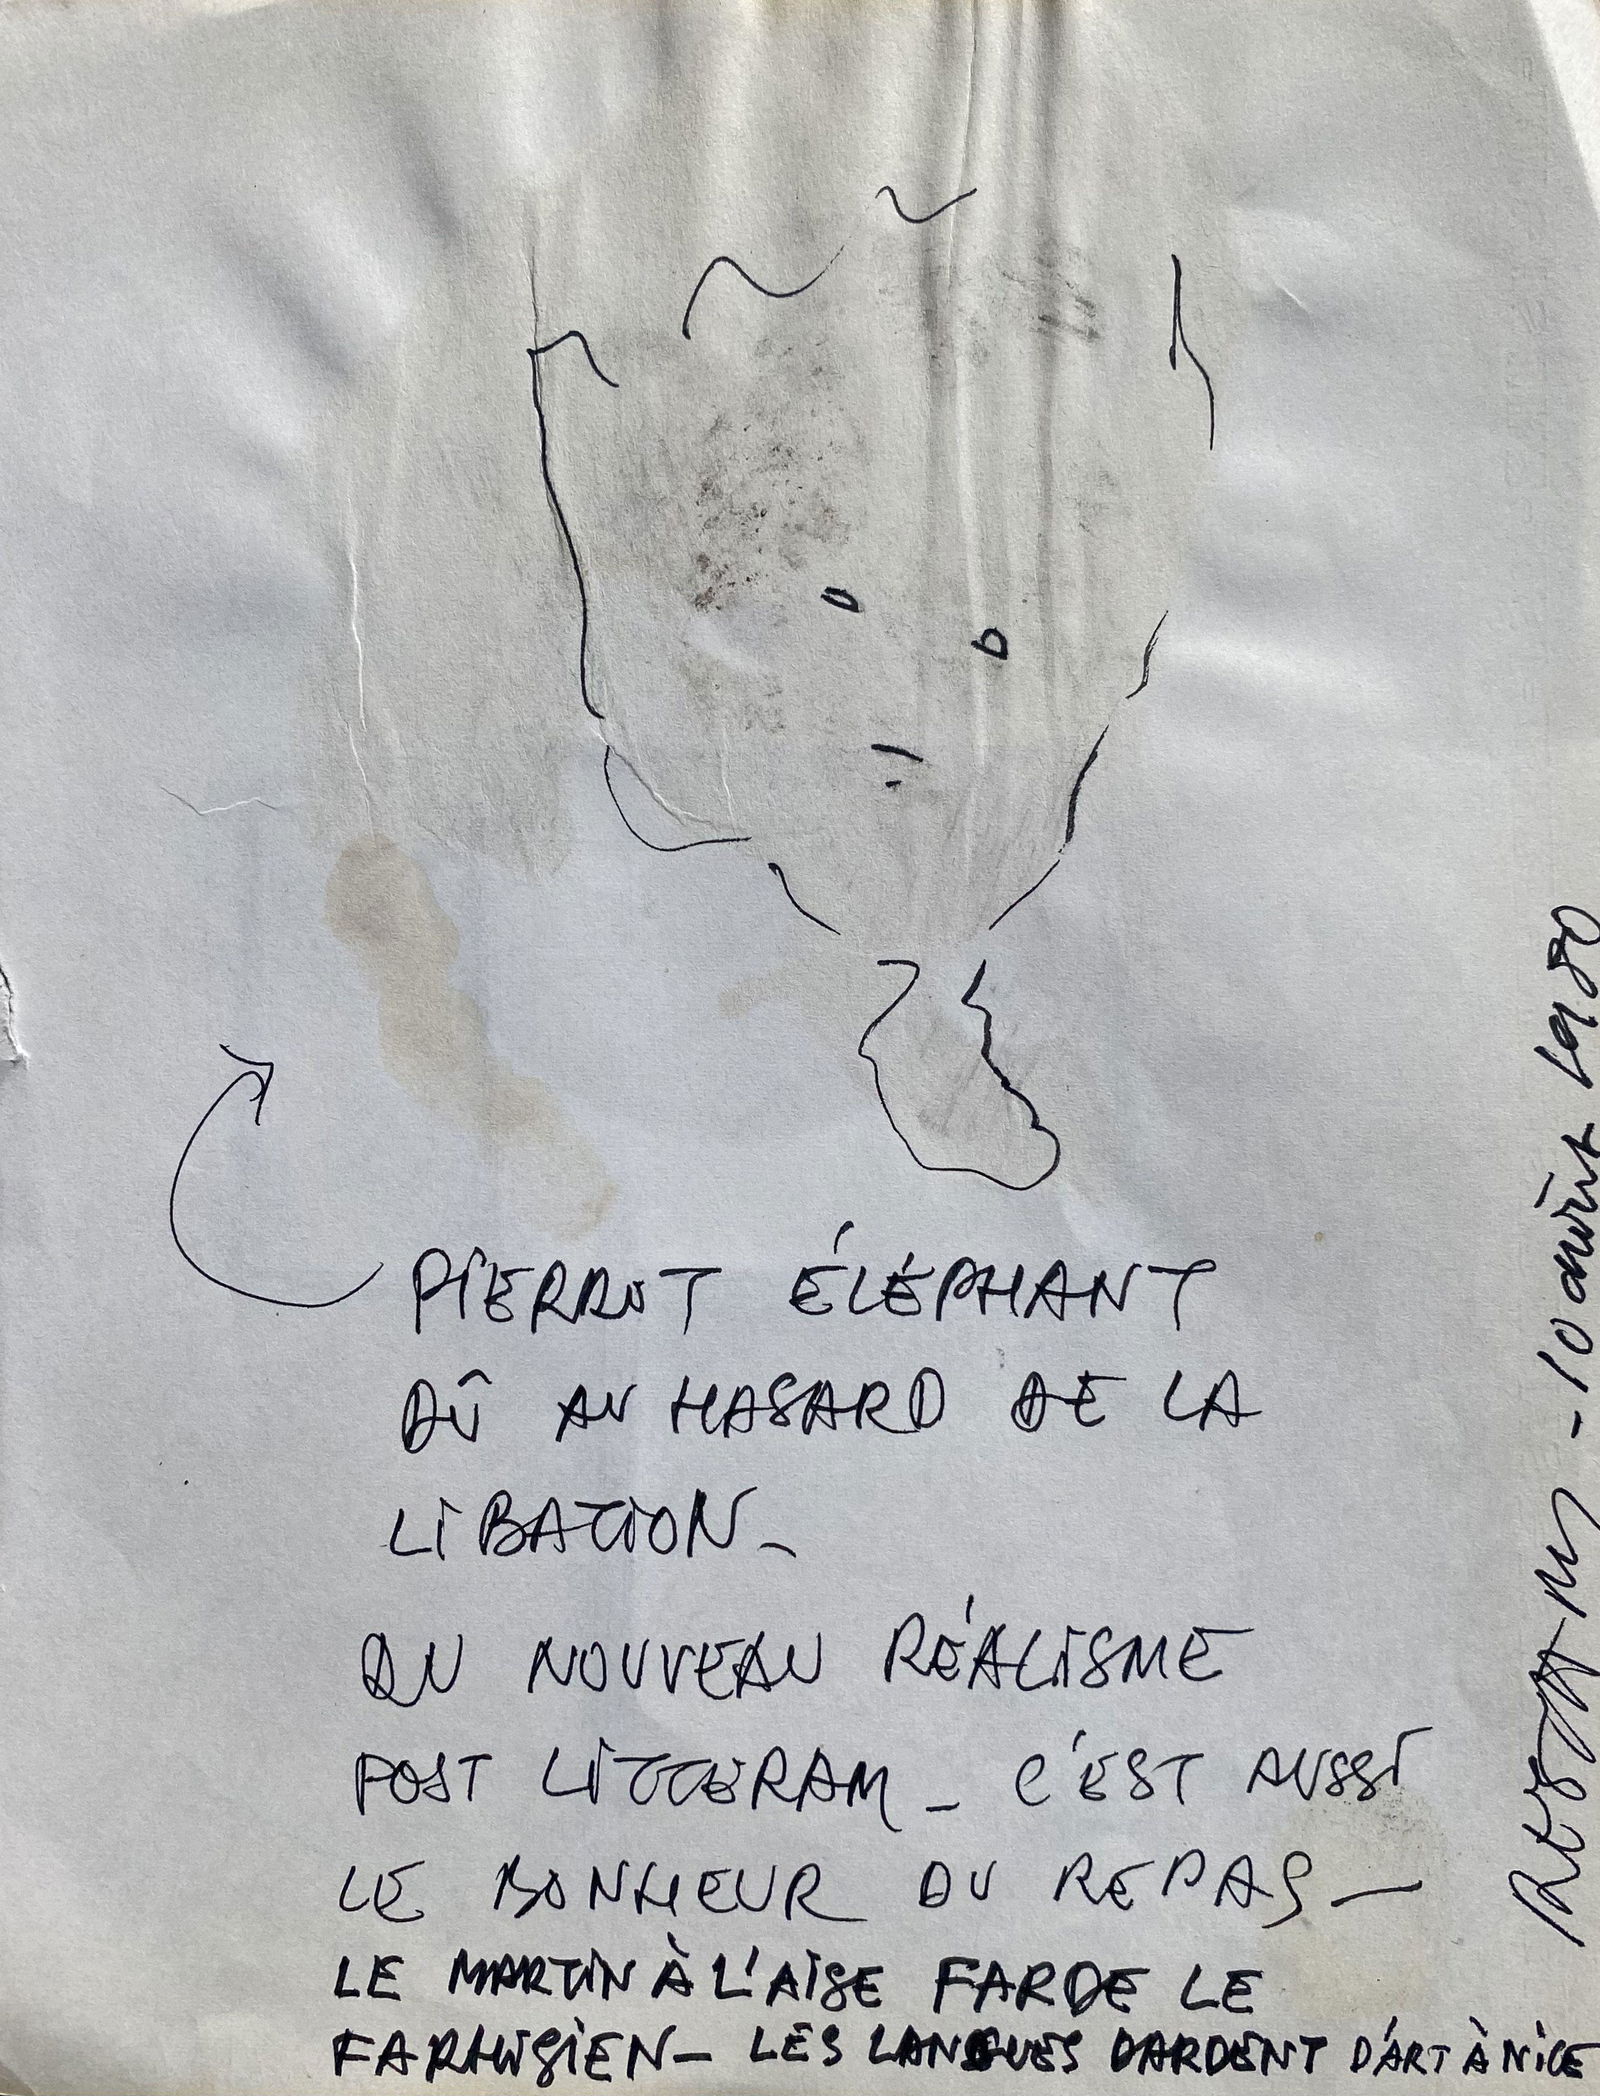 PIERROT ÉLÉPHANT
DÛ AU HASARD DE LA
LIBATION_
DU NOUVEAU RÉALISME
POST LITTERAM_ C'EST AUSSI
LE BONHEUR DU REPAS—
LE MARTIN À L'AISE FARDE LE
LES LANGUES DARDENT D'ART À NICE
RESTANY - 10 août 1980